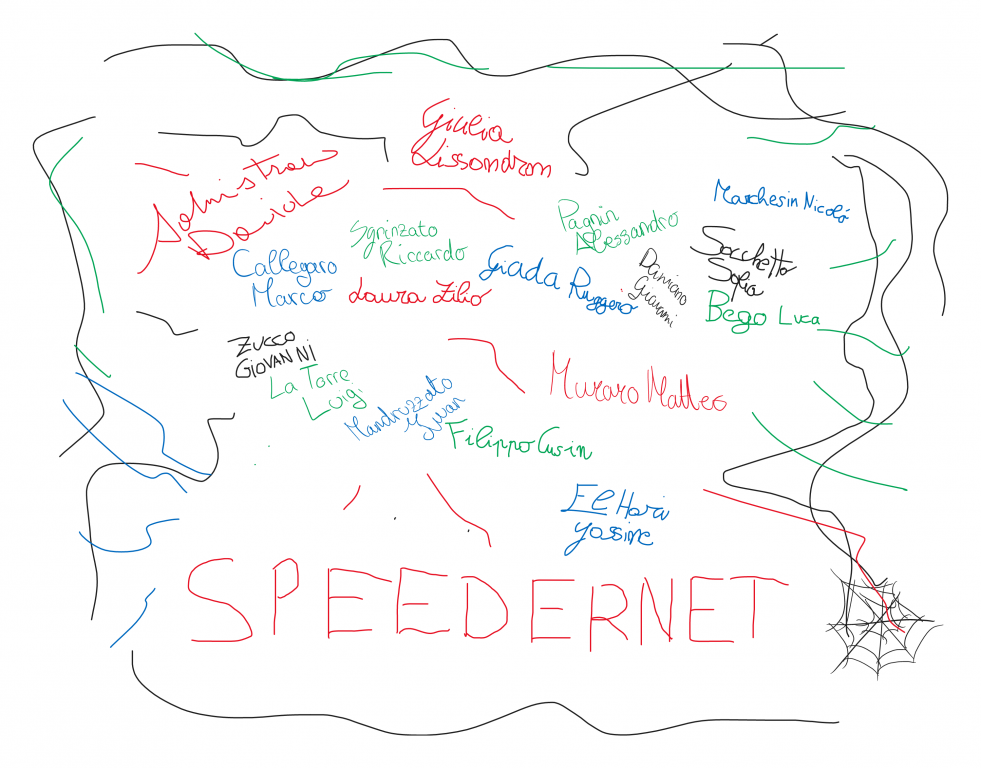 Giulia
Lissandron
Davide
Marchesin Nicolò
Sgrinzato
Riccardo
Pagnin
Alessandro
Callegaro
Marco
Laura Zilio
Giada Ruggero
Damiano
Giovanni
Sacchetto
Sofia
Bego Luca
ZUCCO
GIOVANNI
La Torre
Luigi
Mandruzzato
Yvan
Muraro Matteo
Filippo Cusin
El Hari
yassine
SPEEDERNET